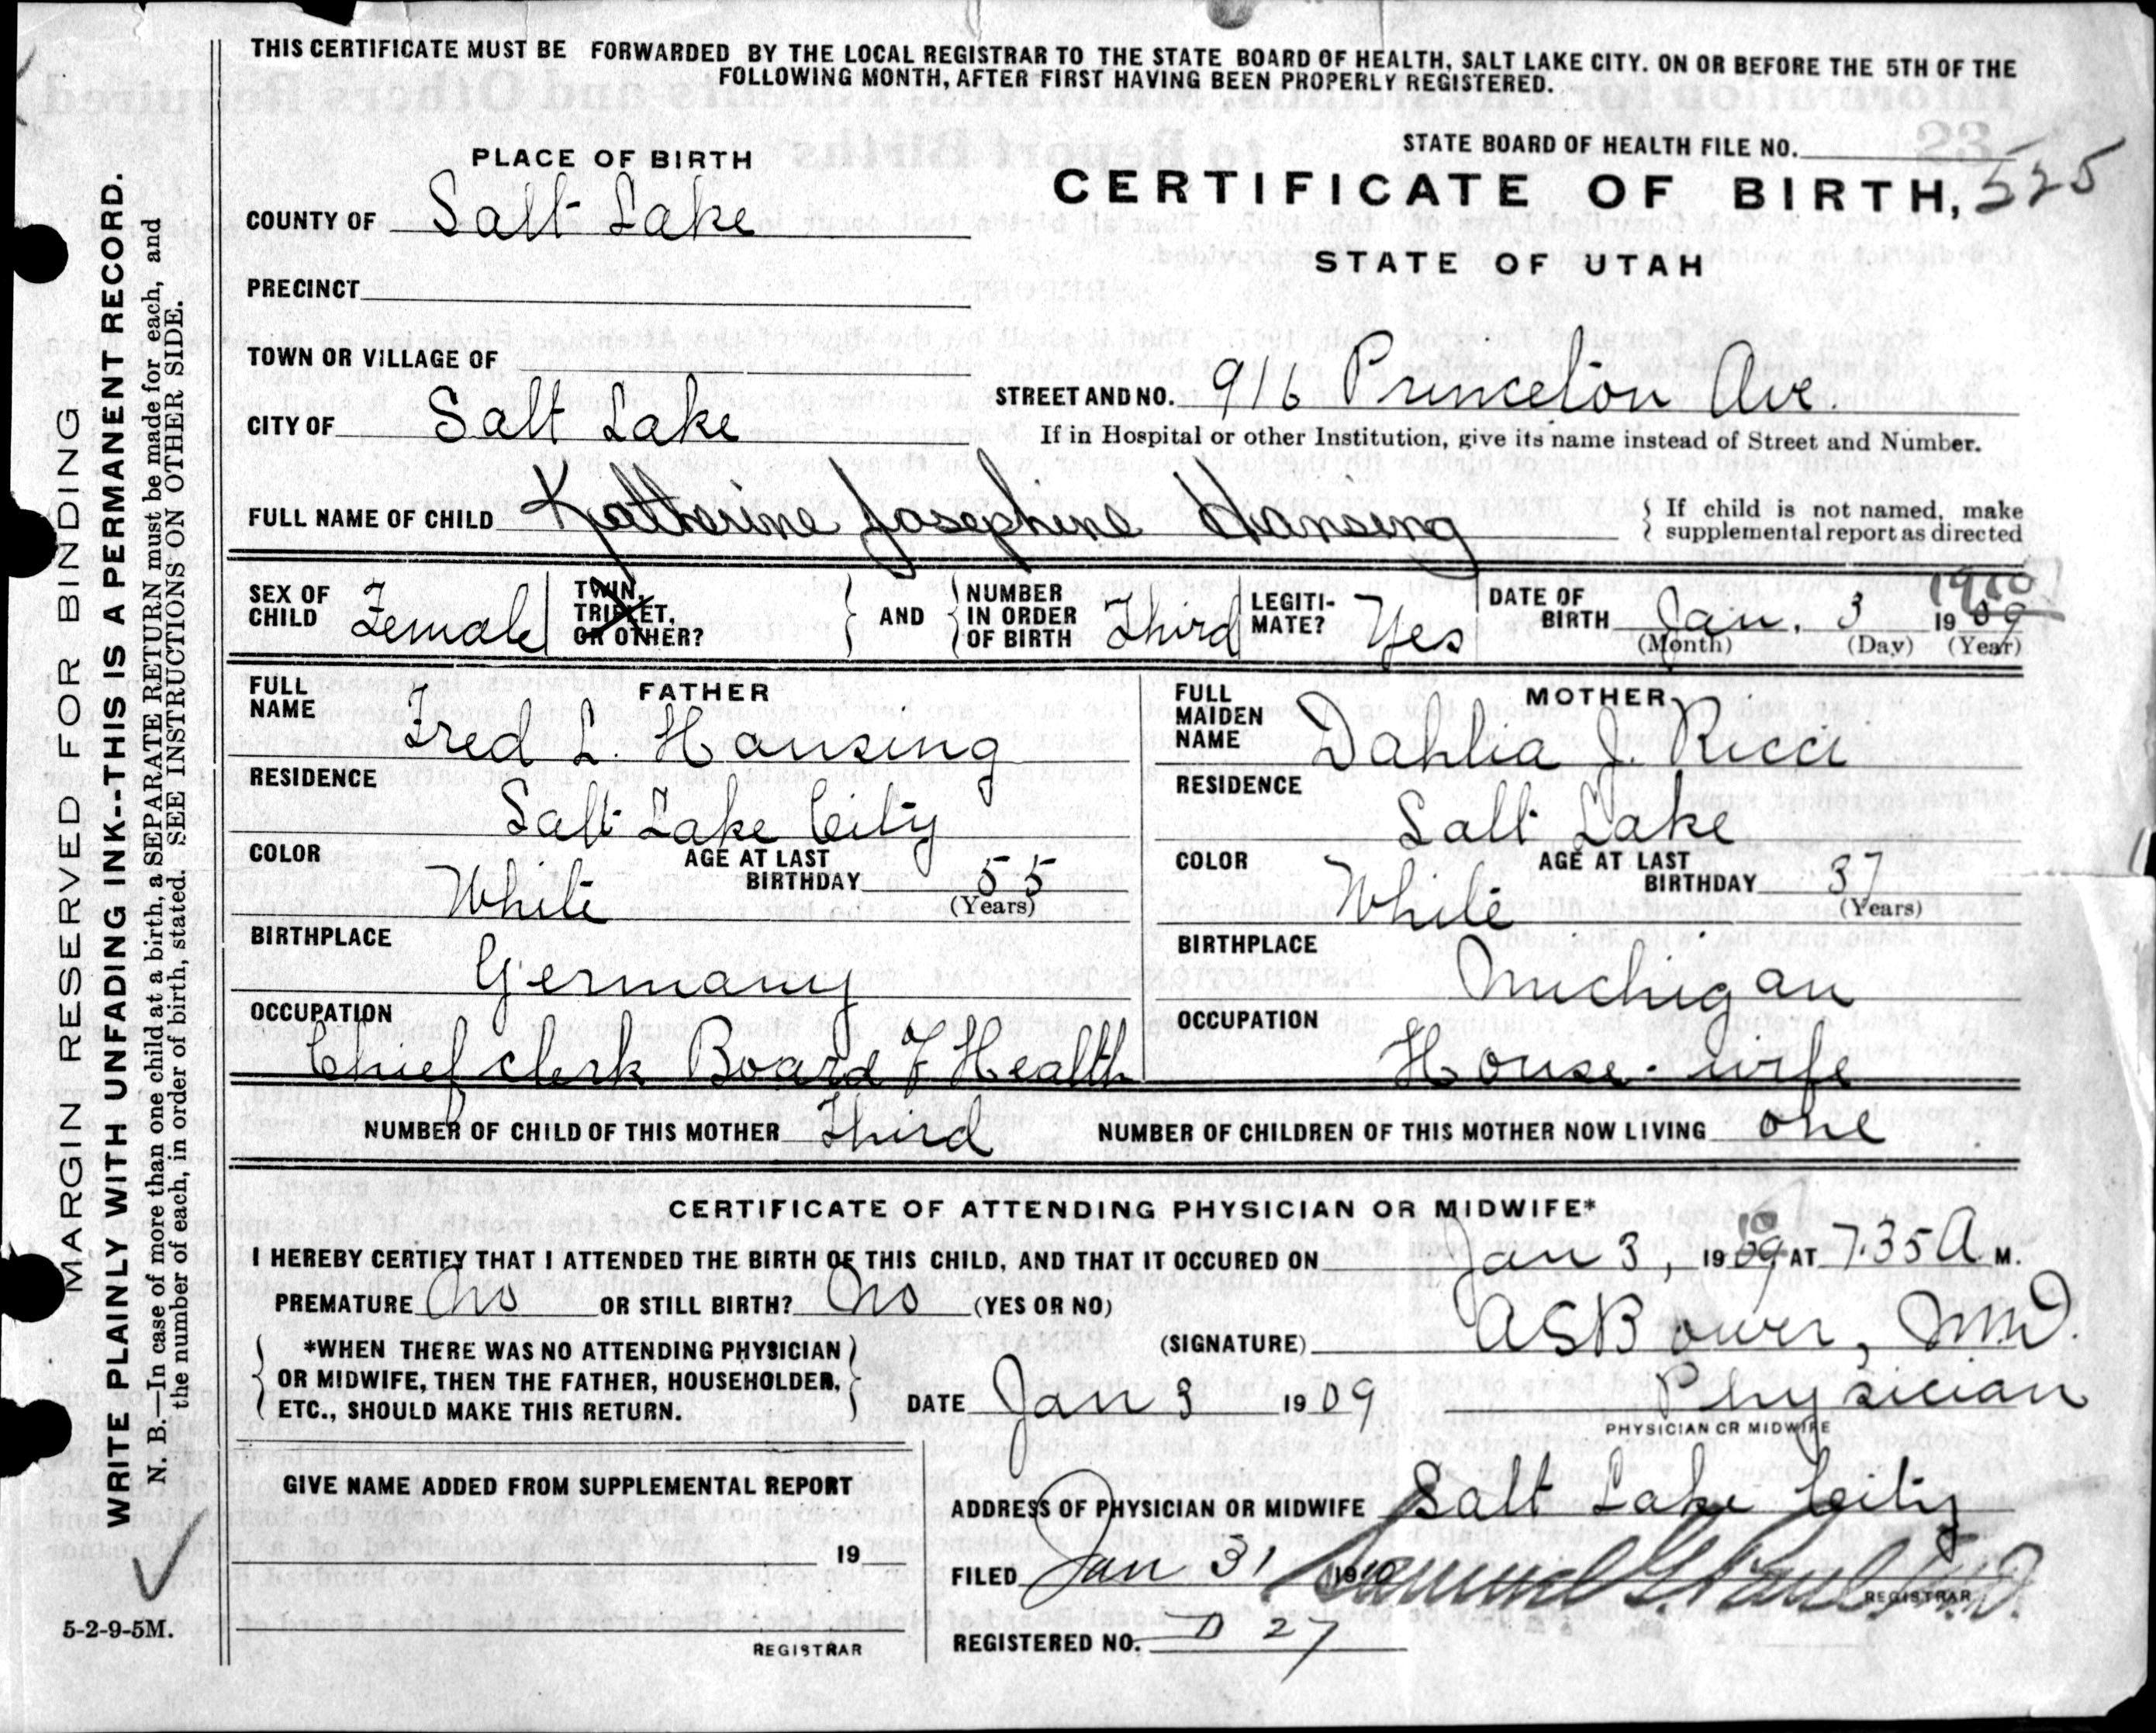 THIS CERTIFICATE MUST BE FORWARDED BY THE LOCAL REGISTRAR TO THE STATE BOARD OF HEALTH, SALT LAKE CITY. ON OR BEFORE THE 5TH OF THE
FOLLOWING MONTH, AFTER FIRST HAVING BEEN PROPERLY REGISTERED.
STATE BOARD OF HEALTH FILE NO.
PLACE OF BIRTH
CERTIFICATE OF BIRTH, 525
COUNTY OF Salt Lake
STATE OF UTAH
PRECINCT
TOWN OR VILLAGE OF
STREET AND NO. 916 Princeton Ave.
CITY OF Salt Lake
If in Hospital or other Institution, give its name instead of Street and Number.
FULL NAME OF CHILD Katherine Josephine Hansing
{ If child is not named, make
supplemental report as directed
SEX OF CHILD Female
TWIN, TRIPLET, OR OTHER?
} AND {
NUMBER IN ORDER OF BIRTH Third
LEGITI-MATE? Yes
DATE OF BIRTH Jan. 3 1909 1910
(Month) (Day) (Year)
FATHER
FULL NAME Fred L. Hansing
RESIDENCE
Salt Lake City
COLOR White
AGE AT LAST BIRTHDAY 55
(Years)
BIRTHPLACE
Germany
OCCUPATION
Chief clerk Board of Health
MOTHER
FULL MAIDEN NAME Dahlia J. Ricci
RESIDENCE
Salt Lake
COLOR White
AGE AT LAST BIRTHDAY 37
(Years)
BIRTHPLACE
Michigan
OCCUPATION
House-wife
NUMBER OF CHILD OF THIS MOTHER Third NUMBER OF CHILDREN OF THIS MOTHER NOW LIVING one
CERTIFICATE OF ATTENDING PHYSICIAN OR MIDWIFE*
I HEREBY CERTIFY THAT I ATTENDED THE BIRTH OF THIS CHILD, AND THAT IT OCCURED ON Jan 3, 1909 10 AT 7.35 A M.
PREMATURE No OR STILL BIRTH? No (YES OR NO)
{ *WHEN THERE WAS NO ATTENDING PHYSICIAN
OR MIDWIFE, THEN THE FATHER, HOUSEHOLDER,
ETC., SHOULD MAKE THIS RETURN. }
(SIGNATURE) A S Bower, M.D.
DATE Jan 3 1909 Physician
PHYSICIAN OR MIDWIFE
GIVE NAME ADDED FROM SUPPLEMENTAL REPORT
19
REGISTRAR
ADDRESS OF PHYSICIAN OR MIDWIFE Salt Lake City
FILED Jan 31 1910 Samuel G. Paul M.D.
REGISTRAR
REGISTERED NO. D 27
MARGIN RESERVED FOR BINDING
WRITE PLAINLY WITH UNFADING INK--THIS IS A PERMANENT RECORD.
N. B.—In case of more than one child at a birth, a SEPARATE RETURN must be made for each, and
the number of each, in order of birth, stated. SEE INSTRUCTIONS ON OTHER SIDE.
5-2-9-5M.